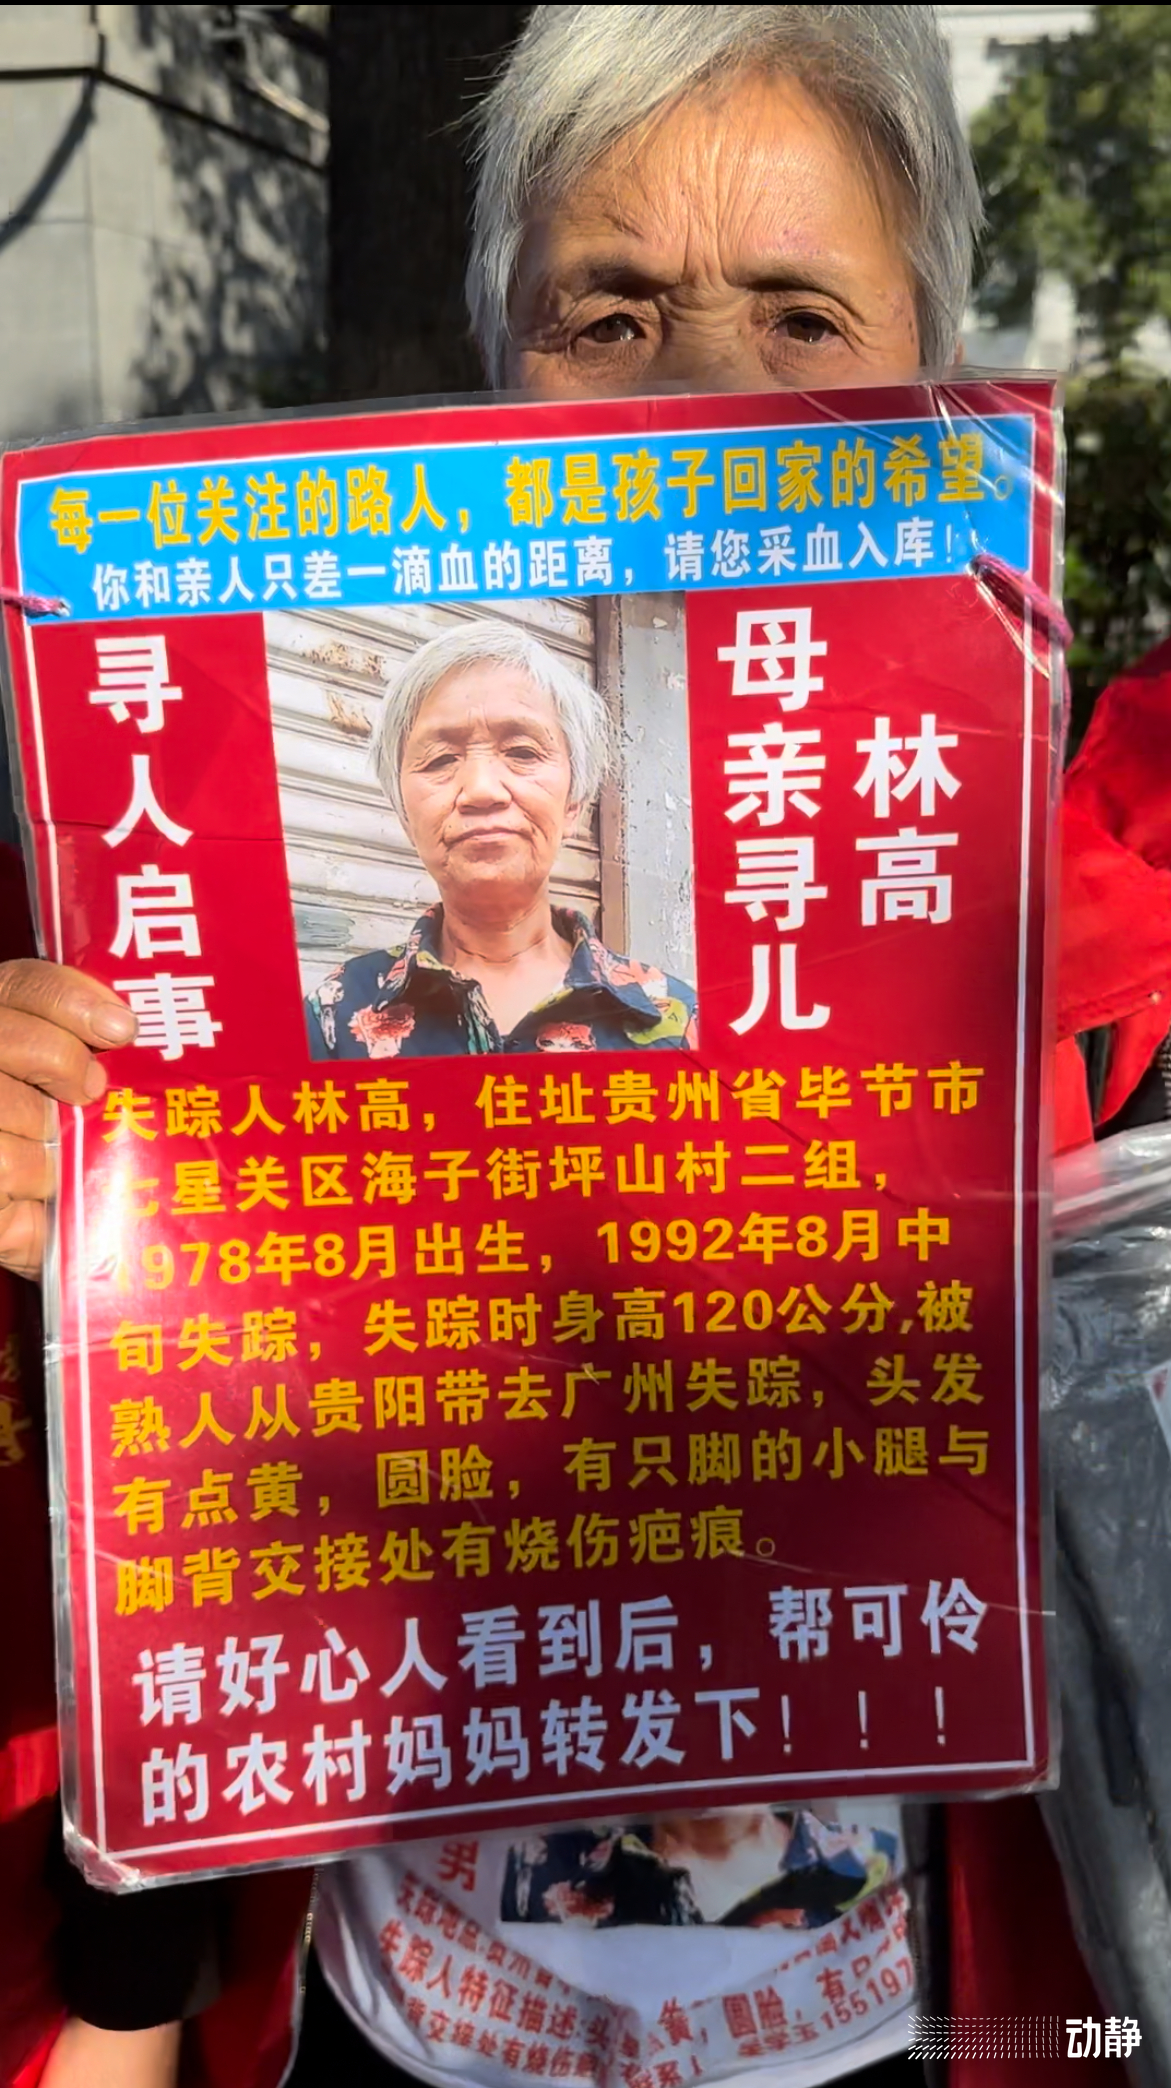 每一位关注的路人，都是孩子回家的希望。
你和亲人只差一滴血的距离，请您采血入库！
寻人启事
母亲寻儿
林高
失踪人林高，住址贵州省毕节市
七星关区海子街坪山村二组，
1978年8月出生，1992年8月中
旬失踪，失踪时身高120公分,被
熟人从贵阳带去广州失踪，头发
有点黄，圆脸，有只脚的小腿与
脚背交接处有烧伤疤痕。
请好心人看到后，帮可伶
的农村妈妈转发下！！！
男
失踪人特征描述 黄，圆脸，有只
背交接处有烧伤 155197
动静